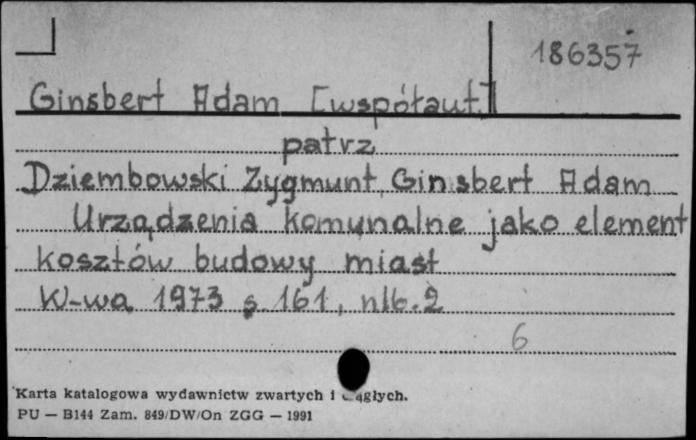 186357
Ginsbert Adam [współaut.]
patrz
Dziembowski Zygmunt, Ginsbert Adam
Urządzenia komunalne jako element
kosztów budowy miast
W-wa 1973 s 161, nlb. 2
6
Karta katalogowa wydawnictw zwartych i ciągłych.
PU — B144 Zam. 849/DW/On ZGG — 1991